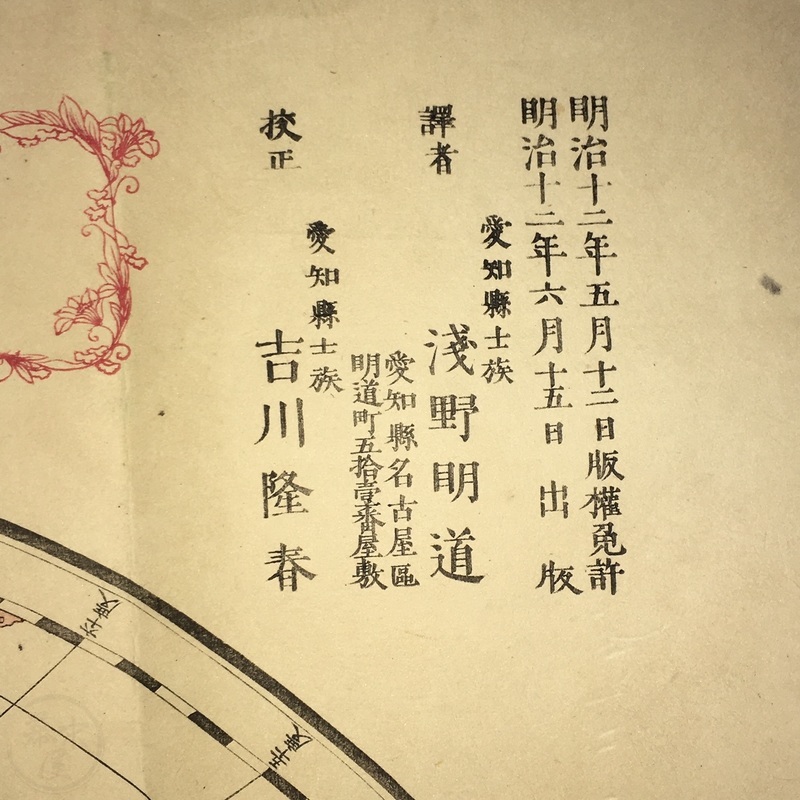 明治十二年五月十二日版權免許
明治十二年六月十五日出版
愛知縣士族
譯者 淺野明道
愛知縣名古屋區
明道町五拾壹番屋敷
愛知縣士族
挍正 吉川隆春